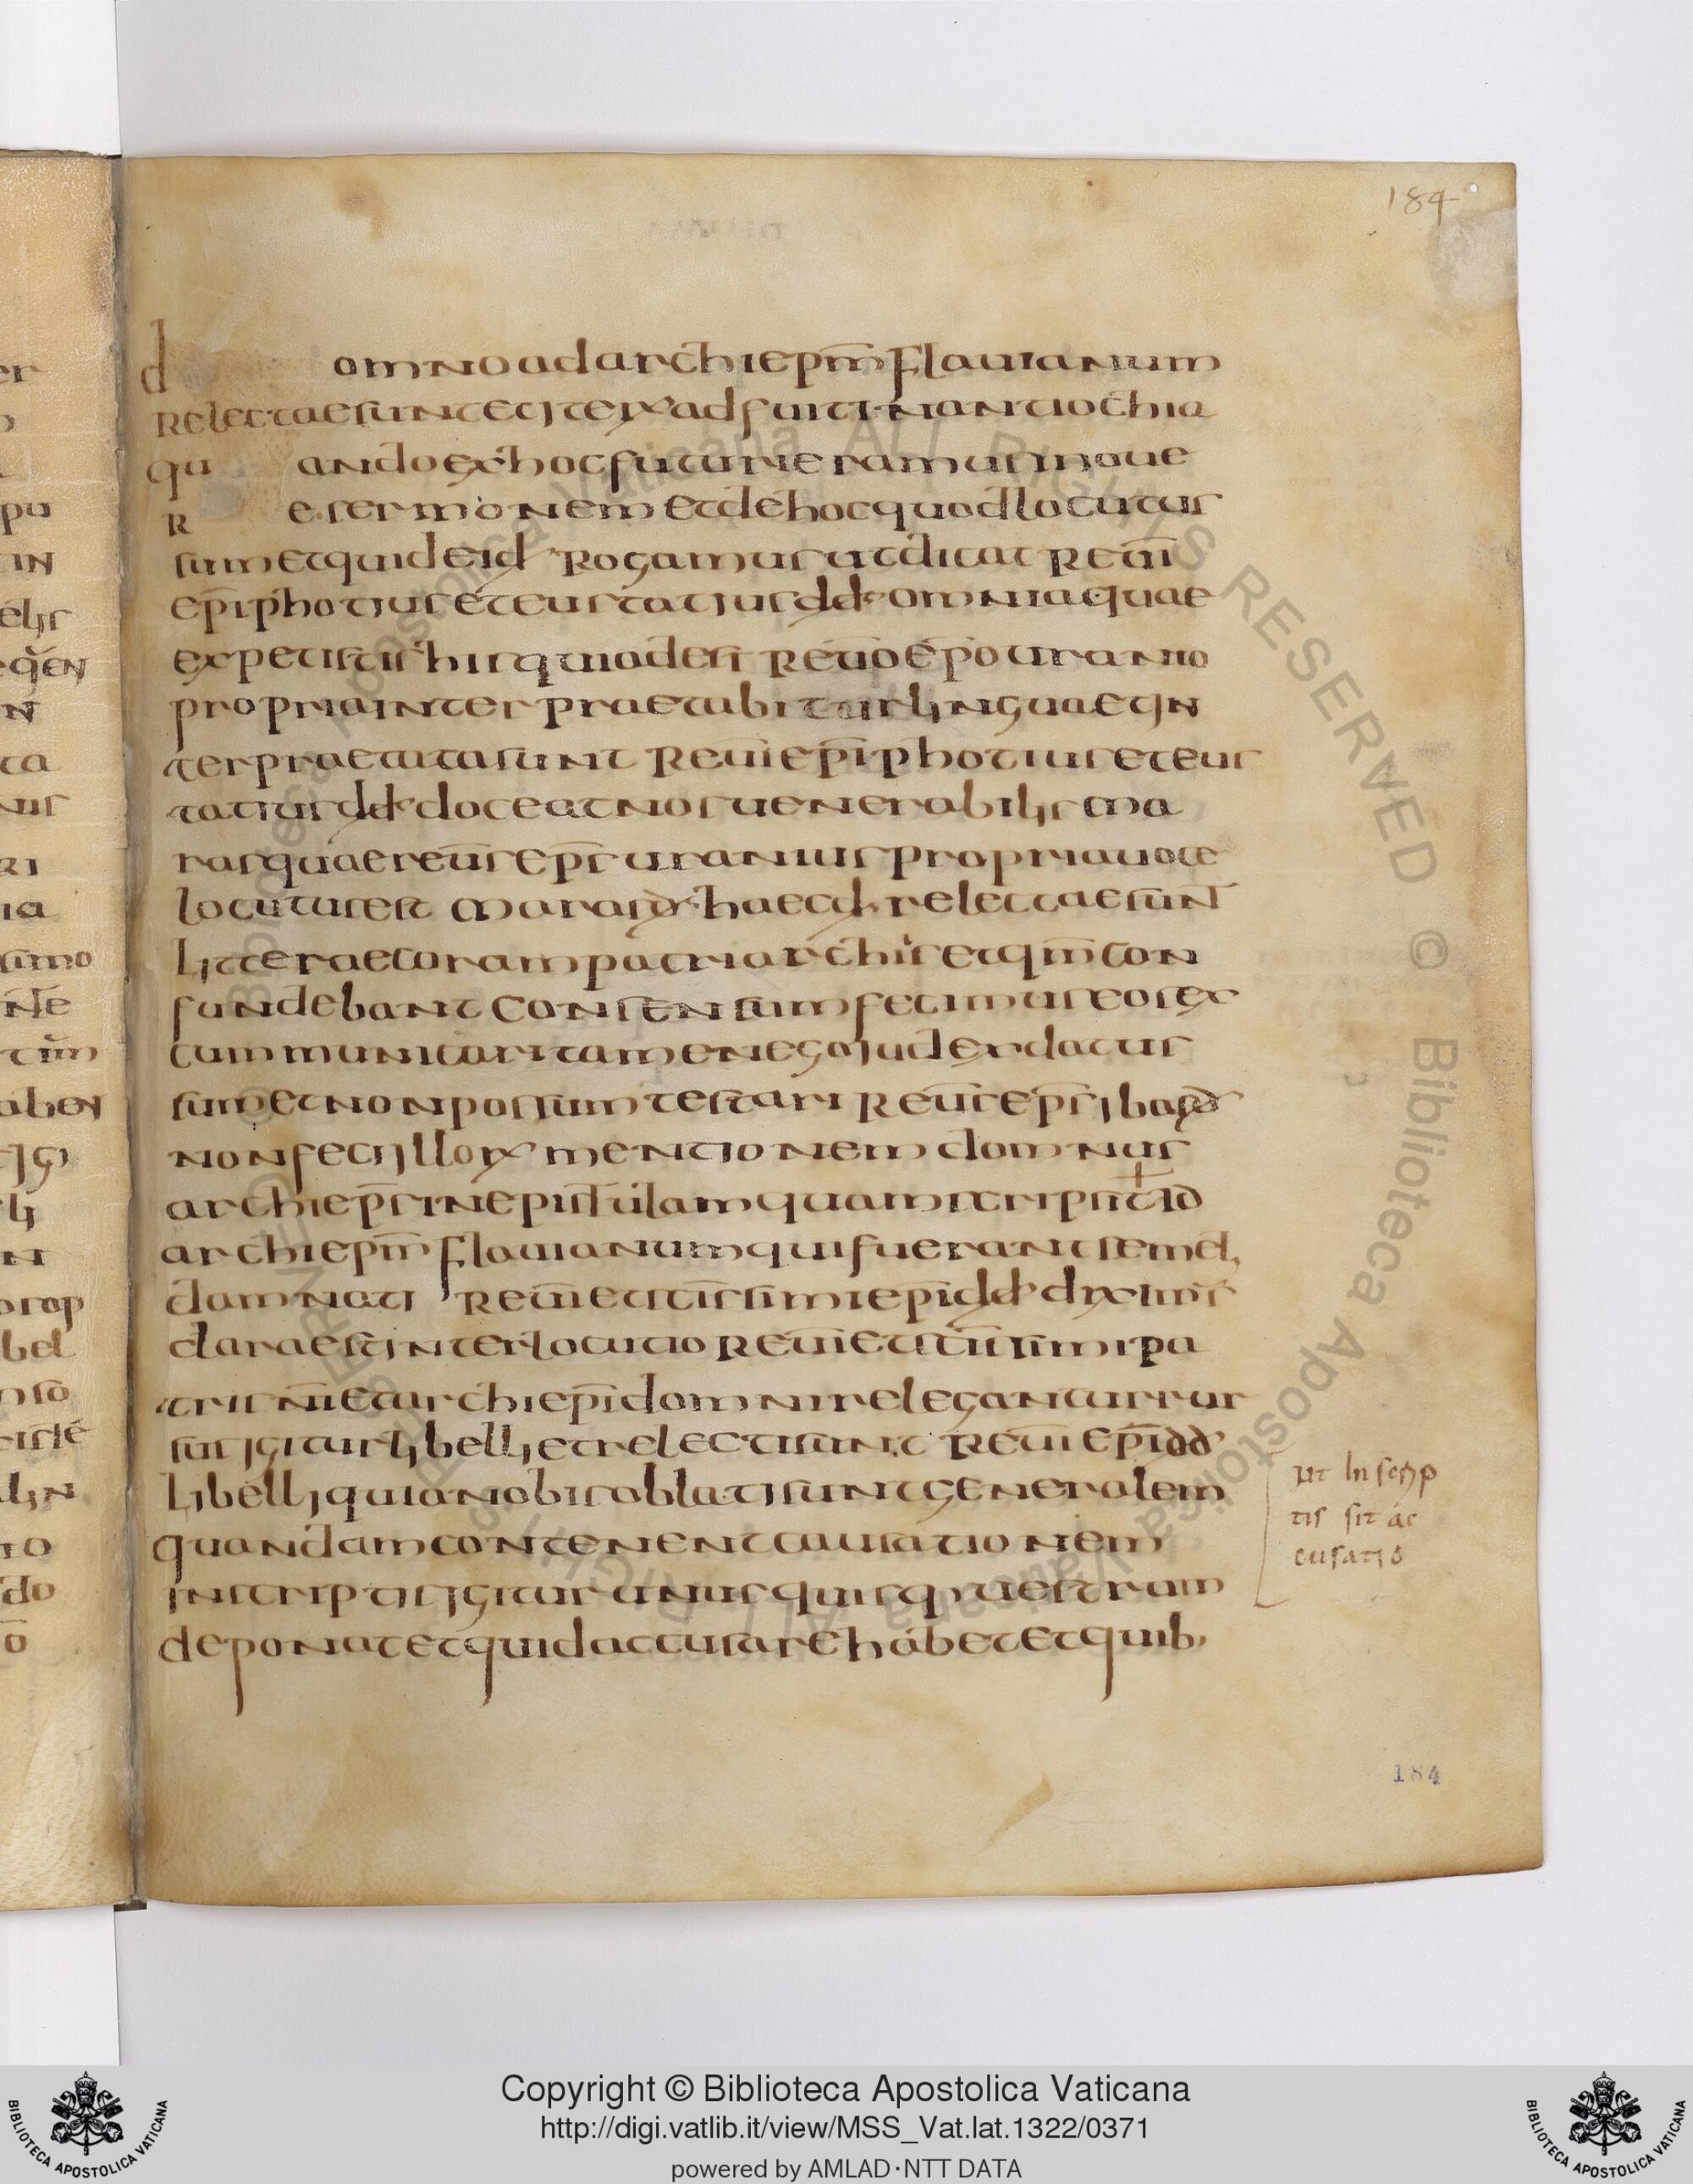 184
domno ad archiepm̄ flauianum
relectae sunt ec item adfuiti in antiochia
quando ex hoc futuri eramus in oue
R e sermonem et de hoc quod locutus
sum et quid eid rogamus ut dicat reuī
epī photius et eustatius dd omnia quae
expetistis his quiade st reuō epō uranio
propria interpraetabitur lingua et in
terpraetata sunt reuī epī photius et eus
tatius dd doceat nos uenerabilis ma
ras quae reūs eps̄ uranius propria uoce
locutus est maras d haec d relectae sunt
litterae coram patriarchis et qm̄ con
fundebant consensum fecimus eos ex
cummunicari tamen ego iudex datus
sum et non possum testari reūs eps̄ ibas d
non fecit illoꝝ mentionem domnus
archieps̄ in epistulam quam scripsit ad
archiepm̄ flauianum qui fuerant semel
damnati reuī et scissimi epī dd dixims
clara est interlocutio reuī et scissimi pa
tris nī et archiepī domni relegantur rur
sus igitur libelli et relecti sunt reuī epī dd
libelli qui a nobis oblati sunt generalem
quandam contenent causationem
inscriptis igitur unusquisq uestrum
deponat et quid accusare habet et quib,
ut in scrip
tis sit ac
cusatio
184
Copyright © Biblioteca Apostolica Vaticana
http://digi.vatlib.it/view/MSS_Vat.lat.1322/0371
powered by AMLAD·NTT DATA